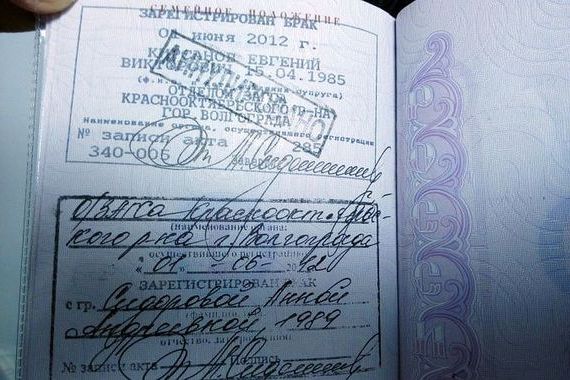 СЕМЕЙНОЕ ПОЛОЖЕНИЕ
ЗАРЕГИСТРИРОВАН БРАК
июня 2012 г.
ЕВГЕНИЙ
15.04.1985
(ф.и.
супруга)
КРАСНООКТЯБРЬСКОГО Р-НА
ГОР. ВОЛГОГРАДА
Наименование органа, осуществившего регистрацию
№ записи акта 285
340-006
О/ЗАГСа Краснооктябрьс-
кого р-на г. Волгограда
(наименование органа,
осуществившего регистрацию)
«01» - 06 - 2012
ЗАРЕГИСТРИРОВАН БРАК
с гр. Сидоровой Анной
Андреевной, 1989
отчество, дата рождения
№ записи акта Подпись